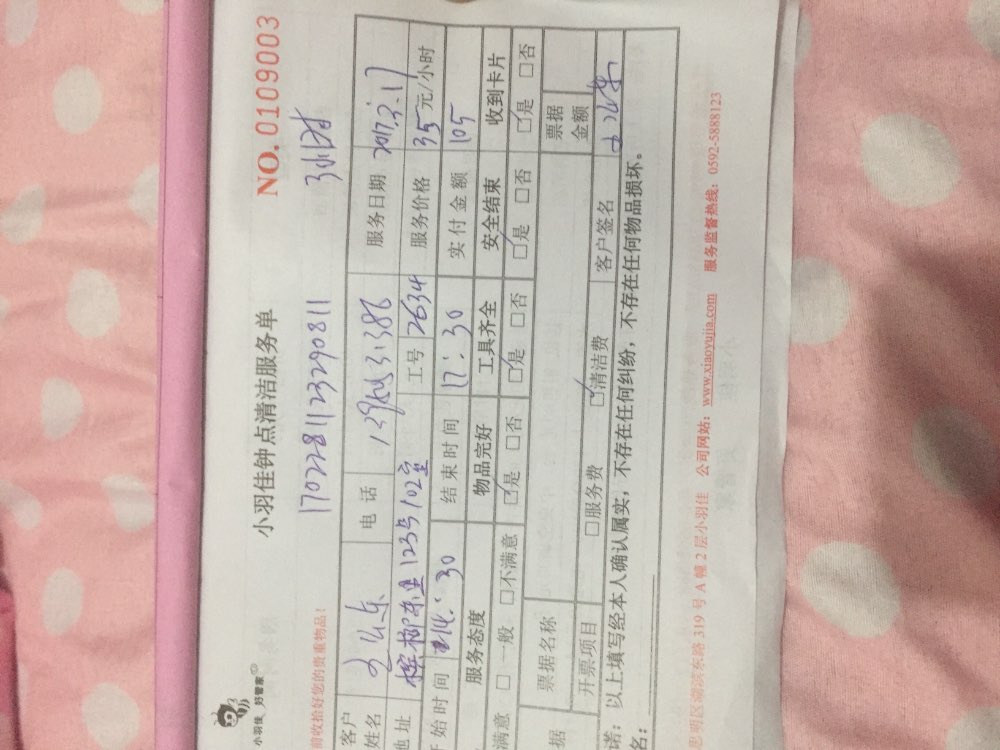 小羽佳 好管家
小羽佳钟点清洁服务单 NO.0109003
前收拾好您的贵重物品!
17022811232908 11
客户姓名 电话 服务日期 2017.2.17
地址 槟榔东里123号102室 工号 2634 服务价格 35元/小时
开始时间 14:30 结束时间 17:30 实付金额 105
服务态度 物品完好 工具齐全 安全结束 收到卡片
满意 □一般 □不满意 ☑是 □否 ☑是 □否 ☑是 □否 ☑是 □否
据 票据名称 票据金额
开票项目 □服务费 ☑清洁费 客户签名
诺:以上填写经本人确认属实,不存在任何纠纷,不存在任何物品损坏。
名:
思明区湖滨东路 319 号 A 幢 2 层小羽佳 公司网站:www.xiaoyujia.com 服务监督热线:0592-5888123